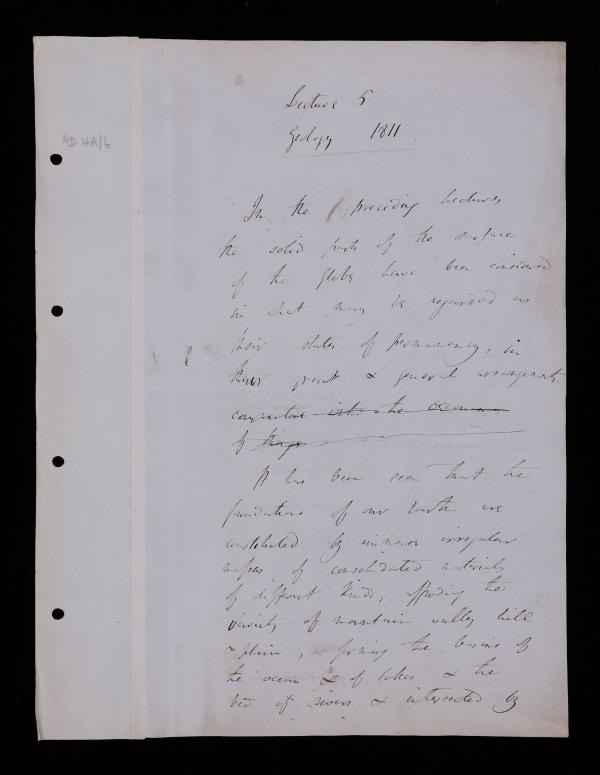 AD 4A/6
Lecture 5
Geology 1811
In the preceding Lectures
the solid parts of the surface
of the Globe have been considered
in what may be regarded as
their states of permanency, in
their great & general arrangements
of things
It has been seen that the
foundations of our Earth are
constituted by immense irregular
masses of consolidated materials
of different kinds, affording the
variety of mountain valley hill
& plain, forming the basins of
the ocean & of lakes & the
bed of rivers & intersected by